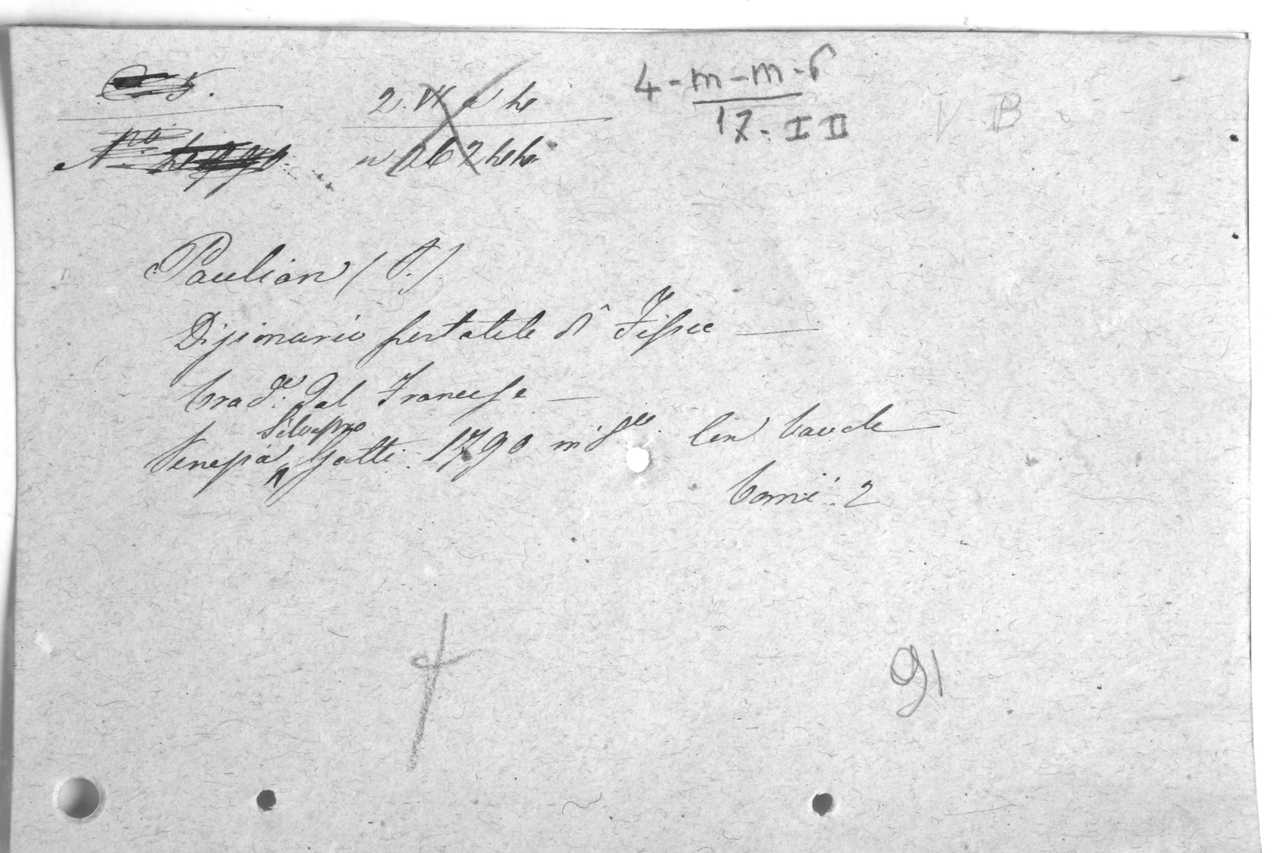 4-m-m-6
17. I II
V B
Paulian (P.)
Dizionario portatile di Fisica
trad.ne dal Francese
Venezia Silvestro Gatti 1790 in 8.vo Con tavole
tomi 2
91